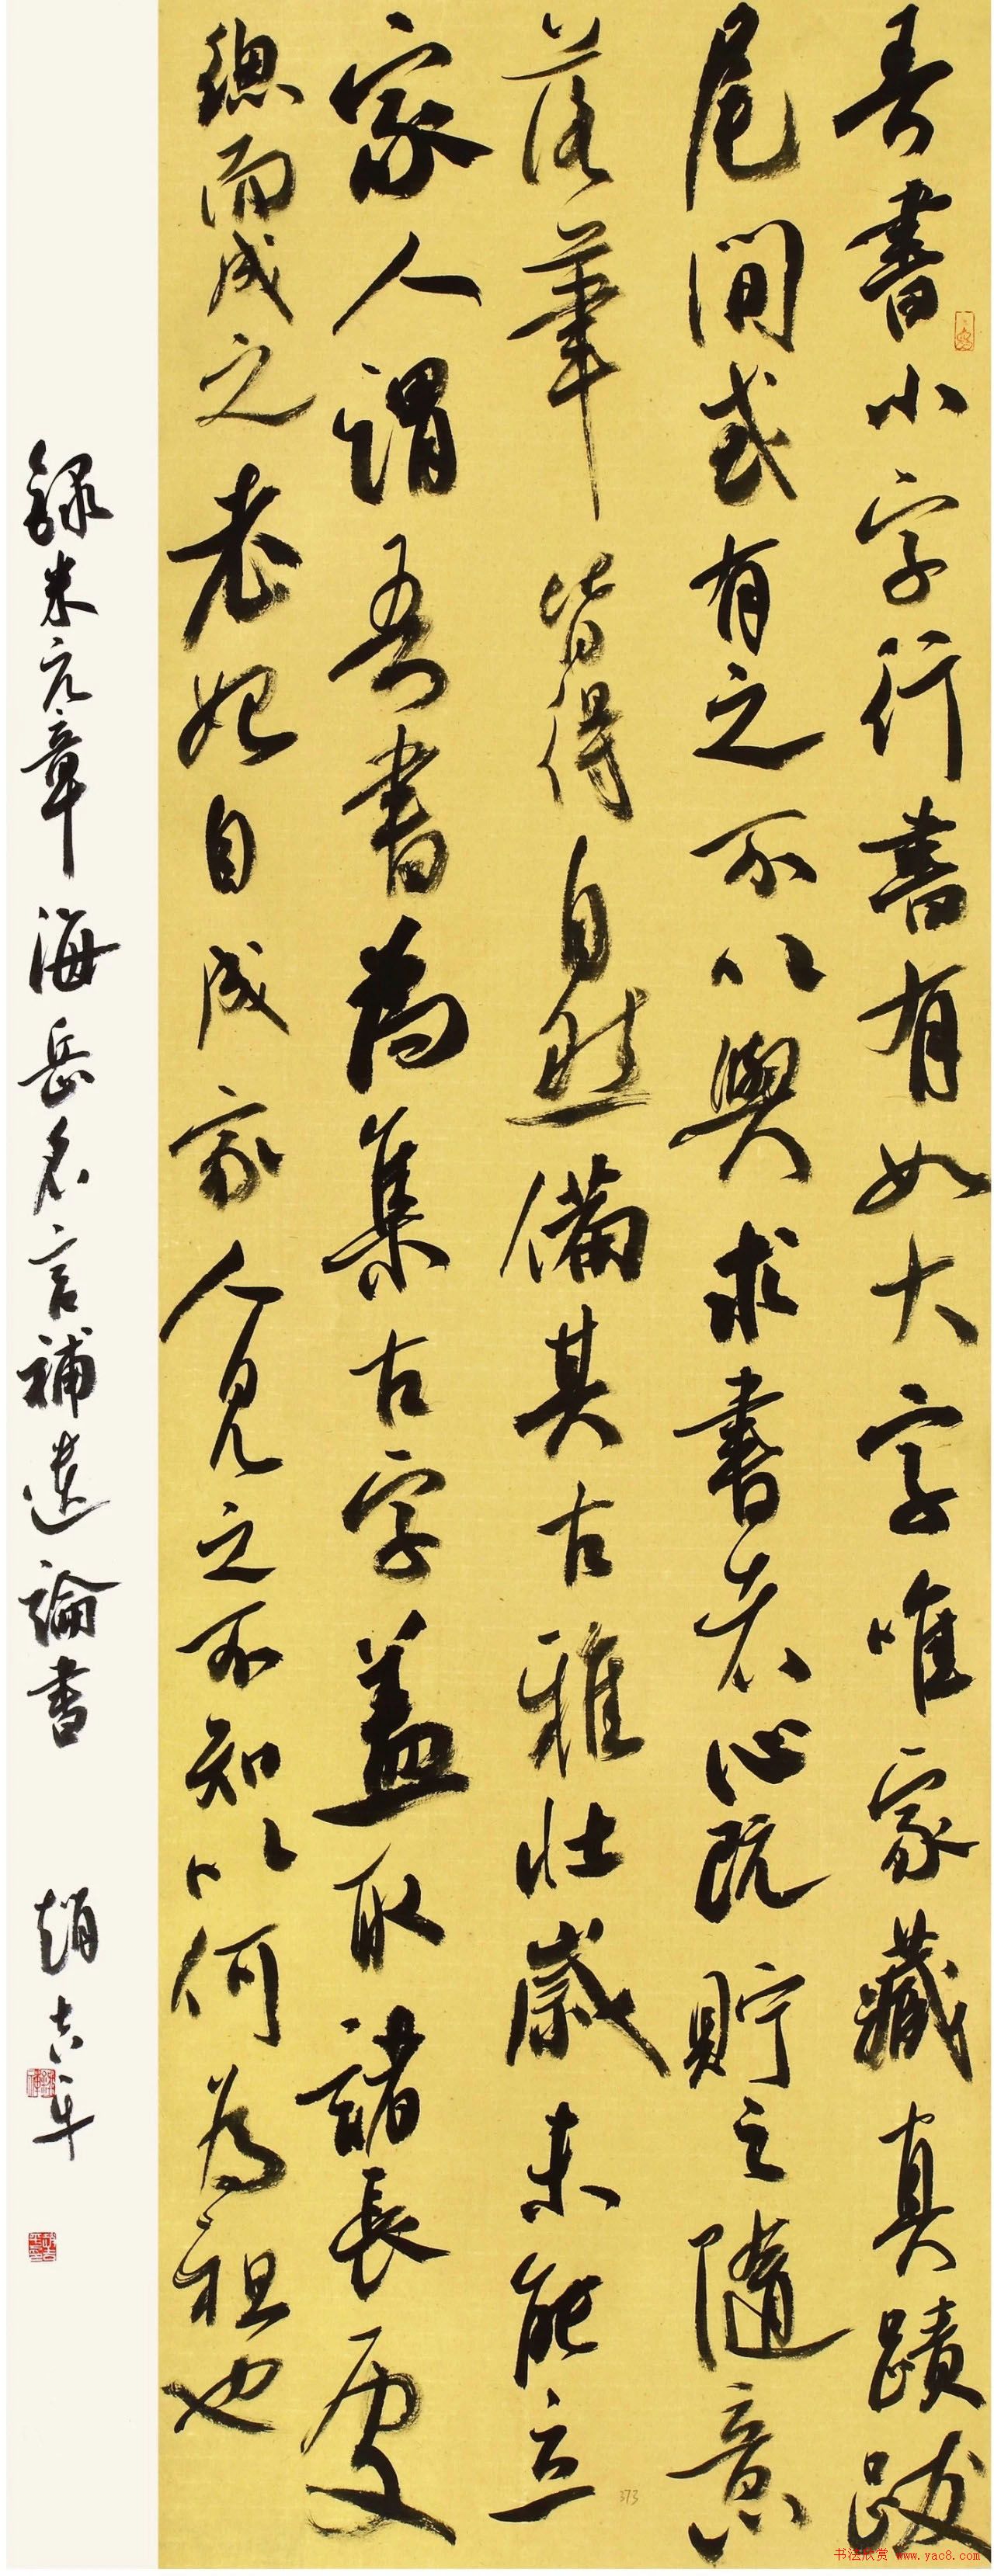 吾書小字行書有如大字唯家藏真蹟跋
尾間或有之不以與求書者心既貯之隨意
落筆皆得自然備其古雅壯歲未能立
家人謂吾書為集古字蓋取諸長處
總而成之老始自成家人見之不知以何為祖也
錄米元章海岳名言補遺論書 趙吉平
373
书法欣赏 www.yac8.com